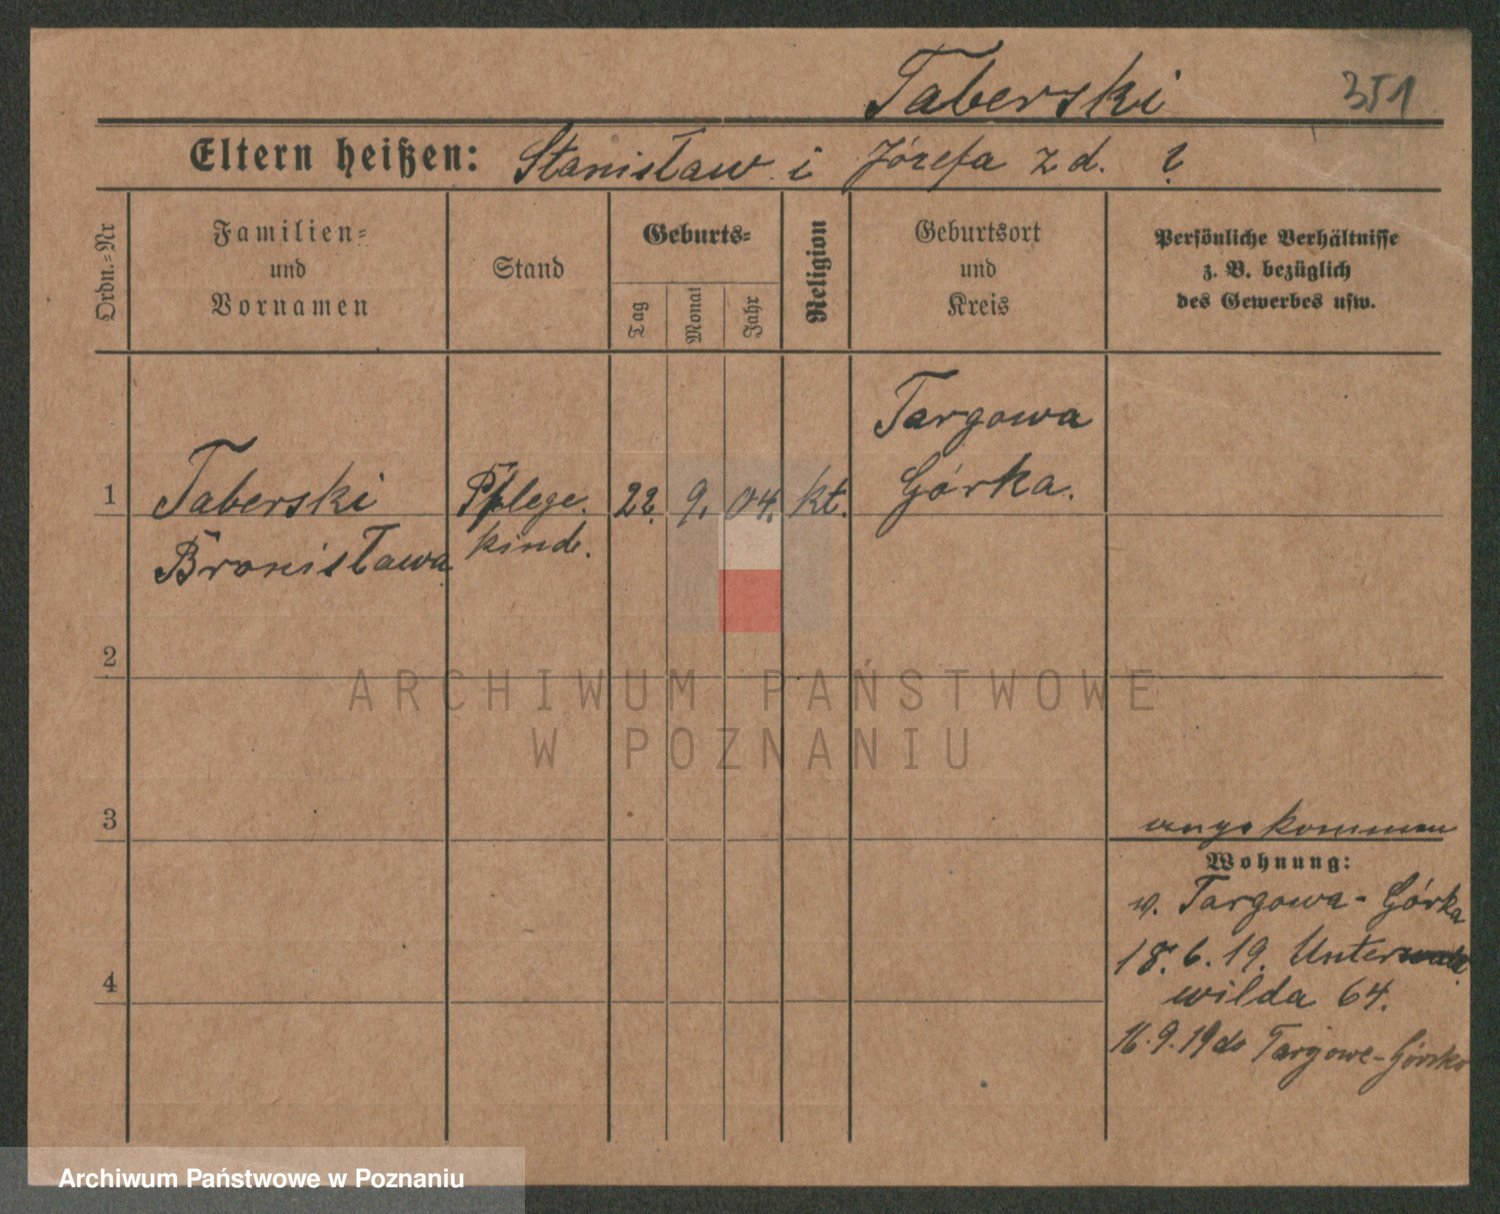 Taberski
351
Eltern heißen: Stanisław i Józefa z d. ?
Ordn.-Nr
Familien-
und
Vornamen
Stand
Geburts-
Tag
Monat
Jahr
Religion
Geburtsort
und
Kreis
Persönliche Verhältnisse
z. B. bezüglich
des Gewerbes usw.
1
Taberski
Bronisława
Pflege.
kind.
22.
9.
04.
kt.
Targowa
Górka.
2
3
4
angekommen
Wohnung:
w. Targowa-Górka
18.6.19. Unter
wilda 64.
16.9.19 do Targowe-Górsko
ARCHIWUM PAŃSTWOWE
W POZNANIU
Archiwum Państwowe w Poznaniu